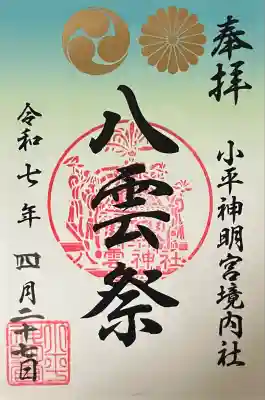 奉拝
小平神明宮境内社
八雲祭
八雲神社
令和七年 四月二十七日